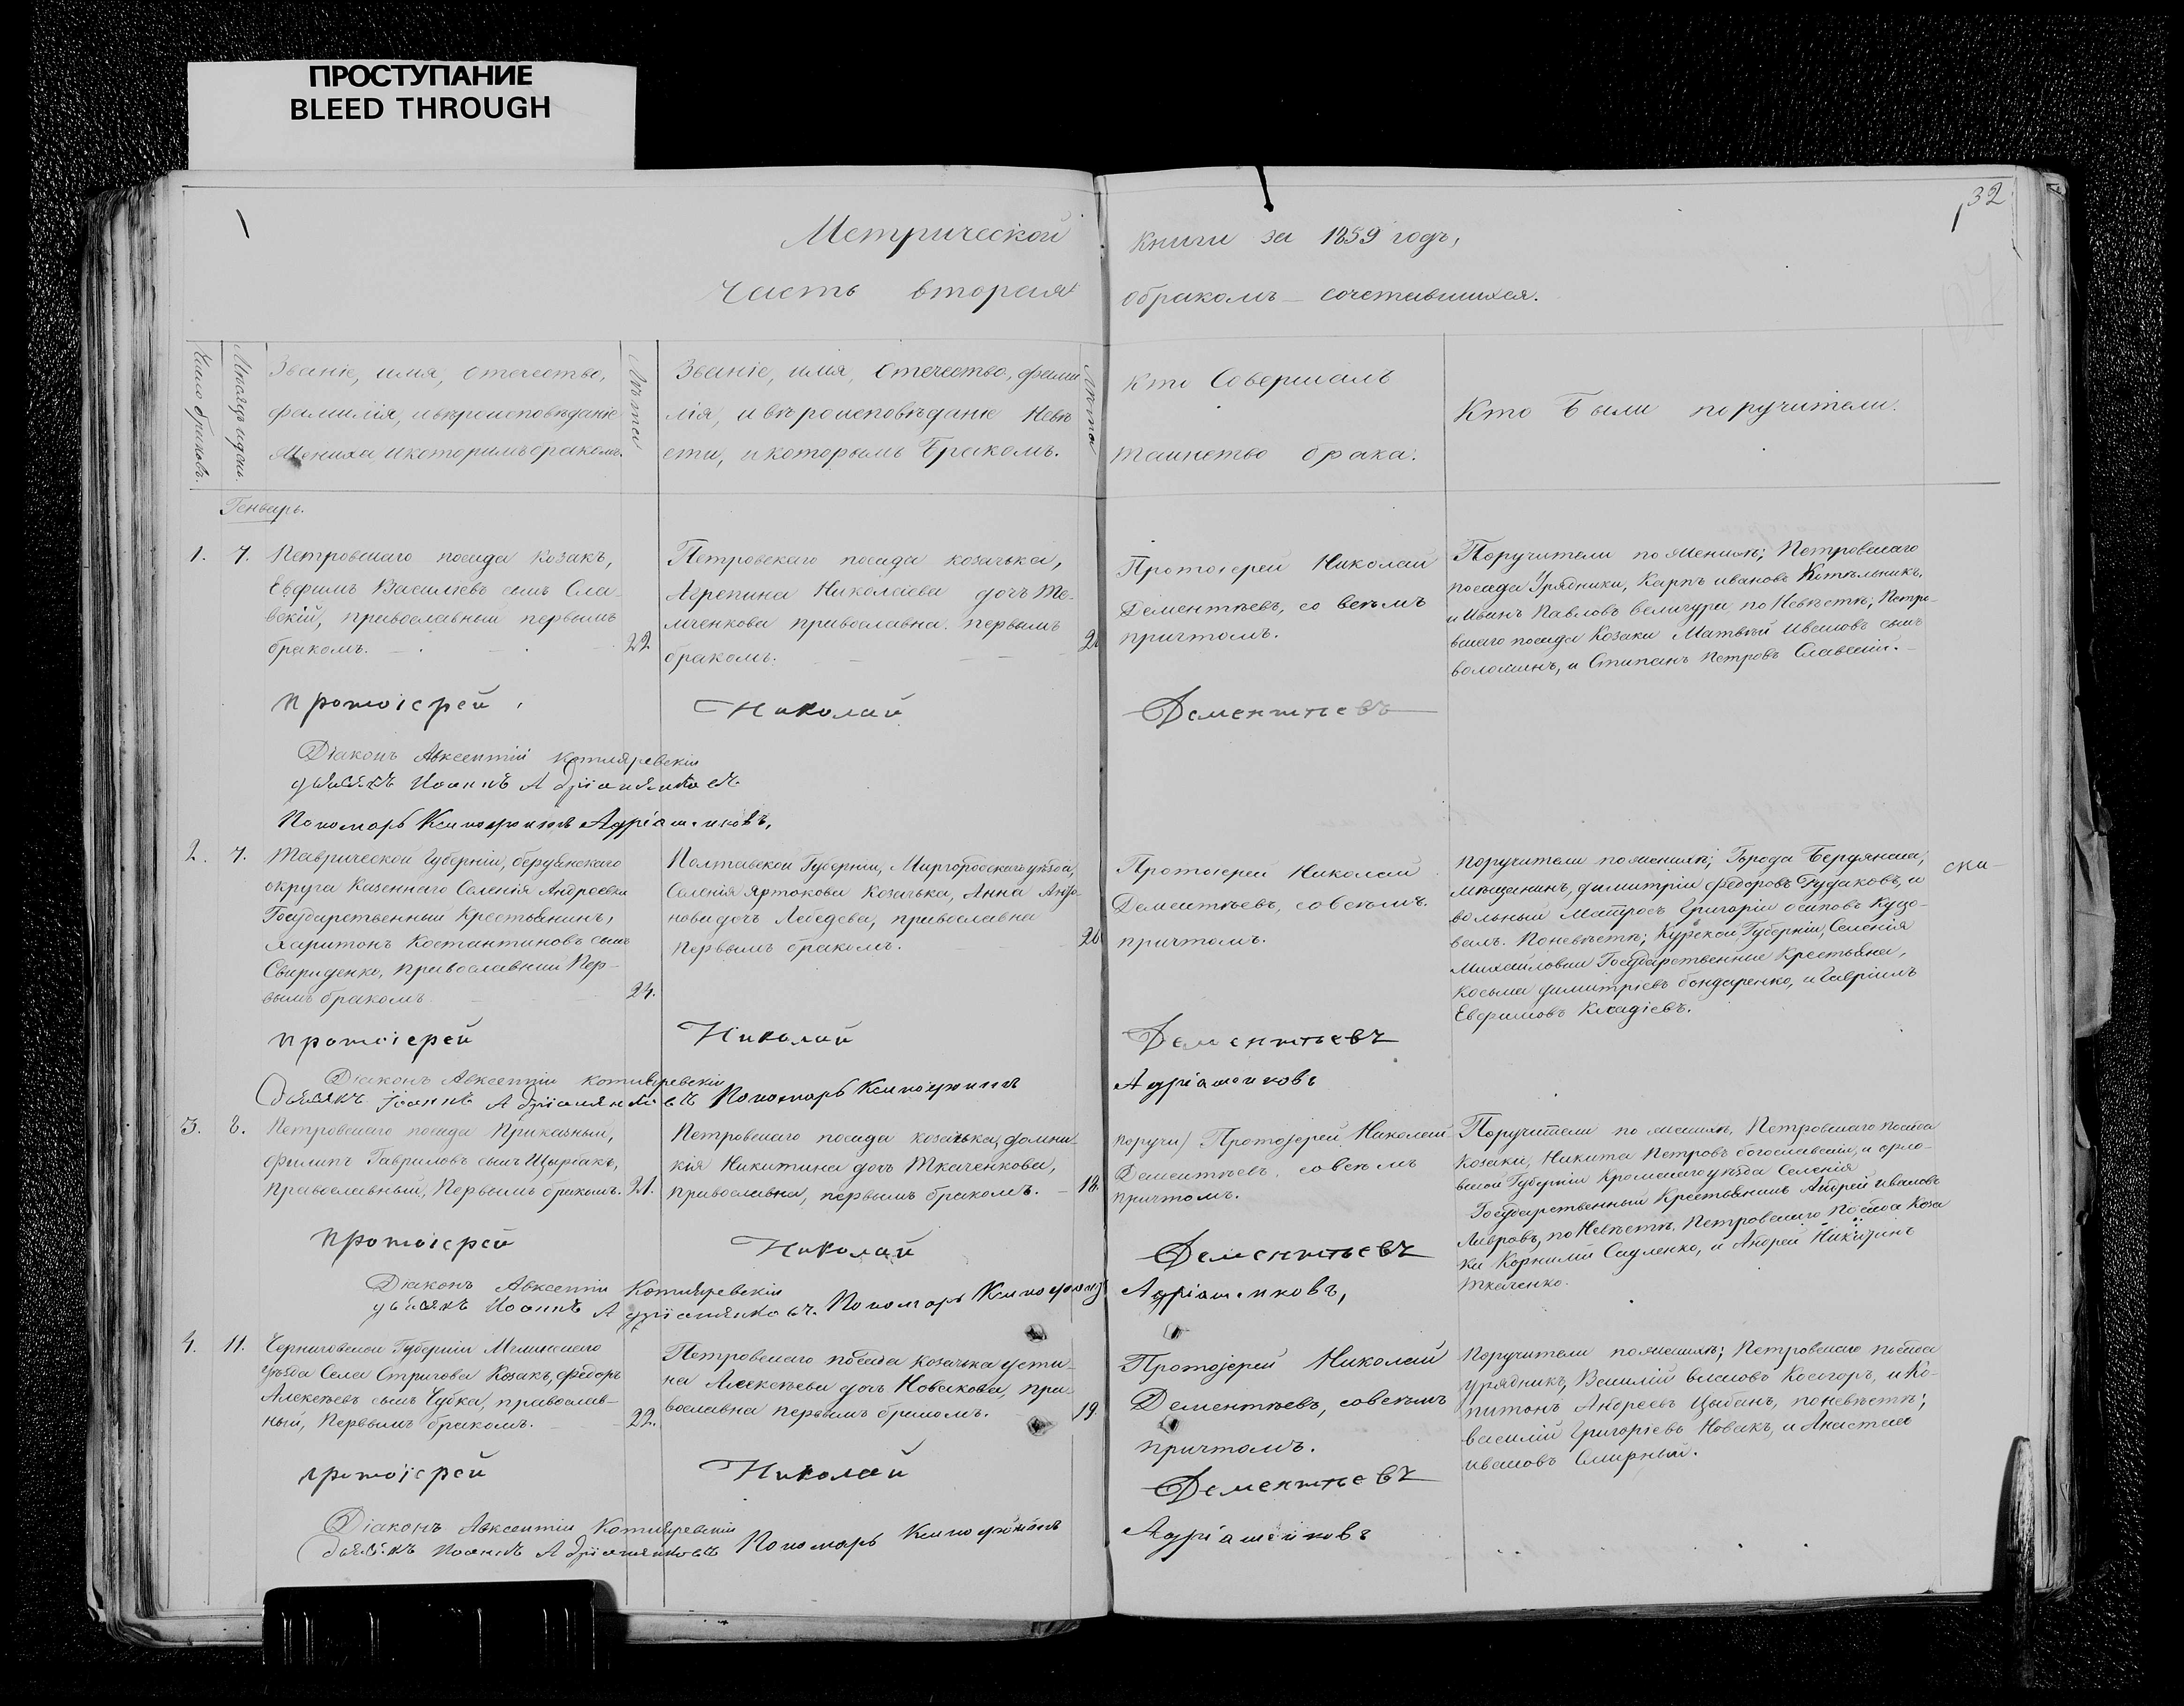 ПРОСТУПАНИЕ
BLEED THROUGH
32
Метрической книги за 1859 годъ,
Часть вторая о бракомъ – сочетавшихся.
Число браковъ.
Мѣсяцъ и день.
Званіе, имя, отечество,
фамилія, и вѣроисповѣданіе
Жениха, и которимъ бракомъ.
Лѣта
Званіе, имя, Отечество, фами
лія, и вѣроисповѣданіе Невѣ
сты, и которымъ Бракомъ.
Лѣта
Кто Совершалъ
таинство брака.
Кто Были поручители.
Генварь.
1. 7.
Петровскаго посада козакъ,
Евфимъ Василіевъ сынъ Сла-
вскій, православный первымъ
бракомъ. 22.
Петровскаго посада козачька,
Агрепина Николаева дочь
православна. первымъ
бракомъ.
Протоіерей Николай
Дементьевъ, со всѣмъ
причтомъ.
Поручители по женихѣ; Петровскаго
посада Урядники, Карпъ ивановъ Котѣльникъ,
и Иванъ Павловъ величура по Невѣстѣ; Петро-
вскаго посада Козаки Матвѣй Ивановъ сынъ
волошинъ, и Стипанъ Петровъ Славскій.
протоіерей Николай Дементьевъ
Діаконъ Авксентій Котляревскій
Иоаннъ
Пономарь
2. 7.
Таврической Губерніи, бердянскаго
округа Казеннаго Селенія Андреевки
Государственный Крестьянинъ,
Харитонъ Костантиновъ сынъ
Свириденко, Православный Пер-
вымъ бракомъ 24.
Полтавской Губерніи, Миргородскаго уѣзда,
Селенія Козачька, Анна
дочь Лебедева, православна
первымъ бракомъ. 20
Протоіерей Николай
Дементьевъ, со всѣмъ
причтомъ.
поручители по женихѣ; Города Бердянска,
мѣщанинъ, димитрій федоровъ Гудаковъ, и
вольный Матросъ Григорій осиповъ
По невѣстѣ; Курской Губерніи, Селенія
Михайловки Государственные Крестьяна,
Косьма димитріевъ бондаренко, и Гавріилъ
Евфимовъ
протоіерей Николай Дементьевъ
Діаконъ Авксентій Котляревскій
Іоаннъ Пономарь
3. 8.
Петровскаго посада Приказный,
Филипъ Гавриловъ сынъ Щырбакъ,
Православный, Первымъ бракомъ. 21.
Петровскаго посада козачька, домни-
кія Никитина дочь Ткаченкова,
православна, первымъ бракомъ. 18.
поручи) Протоіерей Николай
Дементьевъ, со всѣмъ
причтомъ.
Поручители по женихѣ, Петровскаго посада
Козаки, Никита Петровъ богославскій, и орло-
вской Губерніи Кромскаго уѣзда Селенія
Государственный Крестьянинъ Андрей ивановъ
Лавровъ, по Невѣстѣ, Петровскаго посада Коза
ки Корнилій Сауленко, и Андрей Никитинъ
Ткаченко.
протоіерей Николай Дементьевъ
Діаконъ Авксентій Котляревскій
Иоаннъ Пономарь
4. 11.
Черниговской Губерніи Мглинскаго
уѣзда Села Стригова Козакъ, федоръ
Алексѣевъ сынъ Чубка, православ-
ный, Первымъ бракомъ. 22.
Петровскаго посада козачька усти-
на Алексѣева дочь Новакова, пра-
вославна первымъ бракомъ. 19.
Протоіерей Николай
Дементьевъ, со всѣмъ
причтомъ.
Поручители по женихѣ; Петровскаго посада
урядникъ, Василій власовъ Косогоръ, и Ка-
питонъ Андреевъ Цыбань, по невѣстѣ;
василій Григоріевъ Новакъ, и Анастасъ
ивановъ Смирный.
протоіерей Николай Дементьевъ
Діаконъ Авксентій Котляревскій
Иоаннъ Пономарь